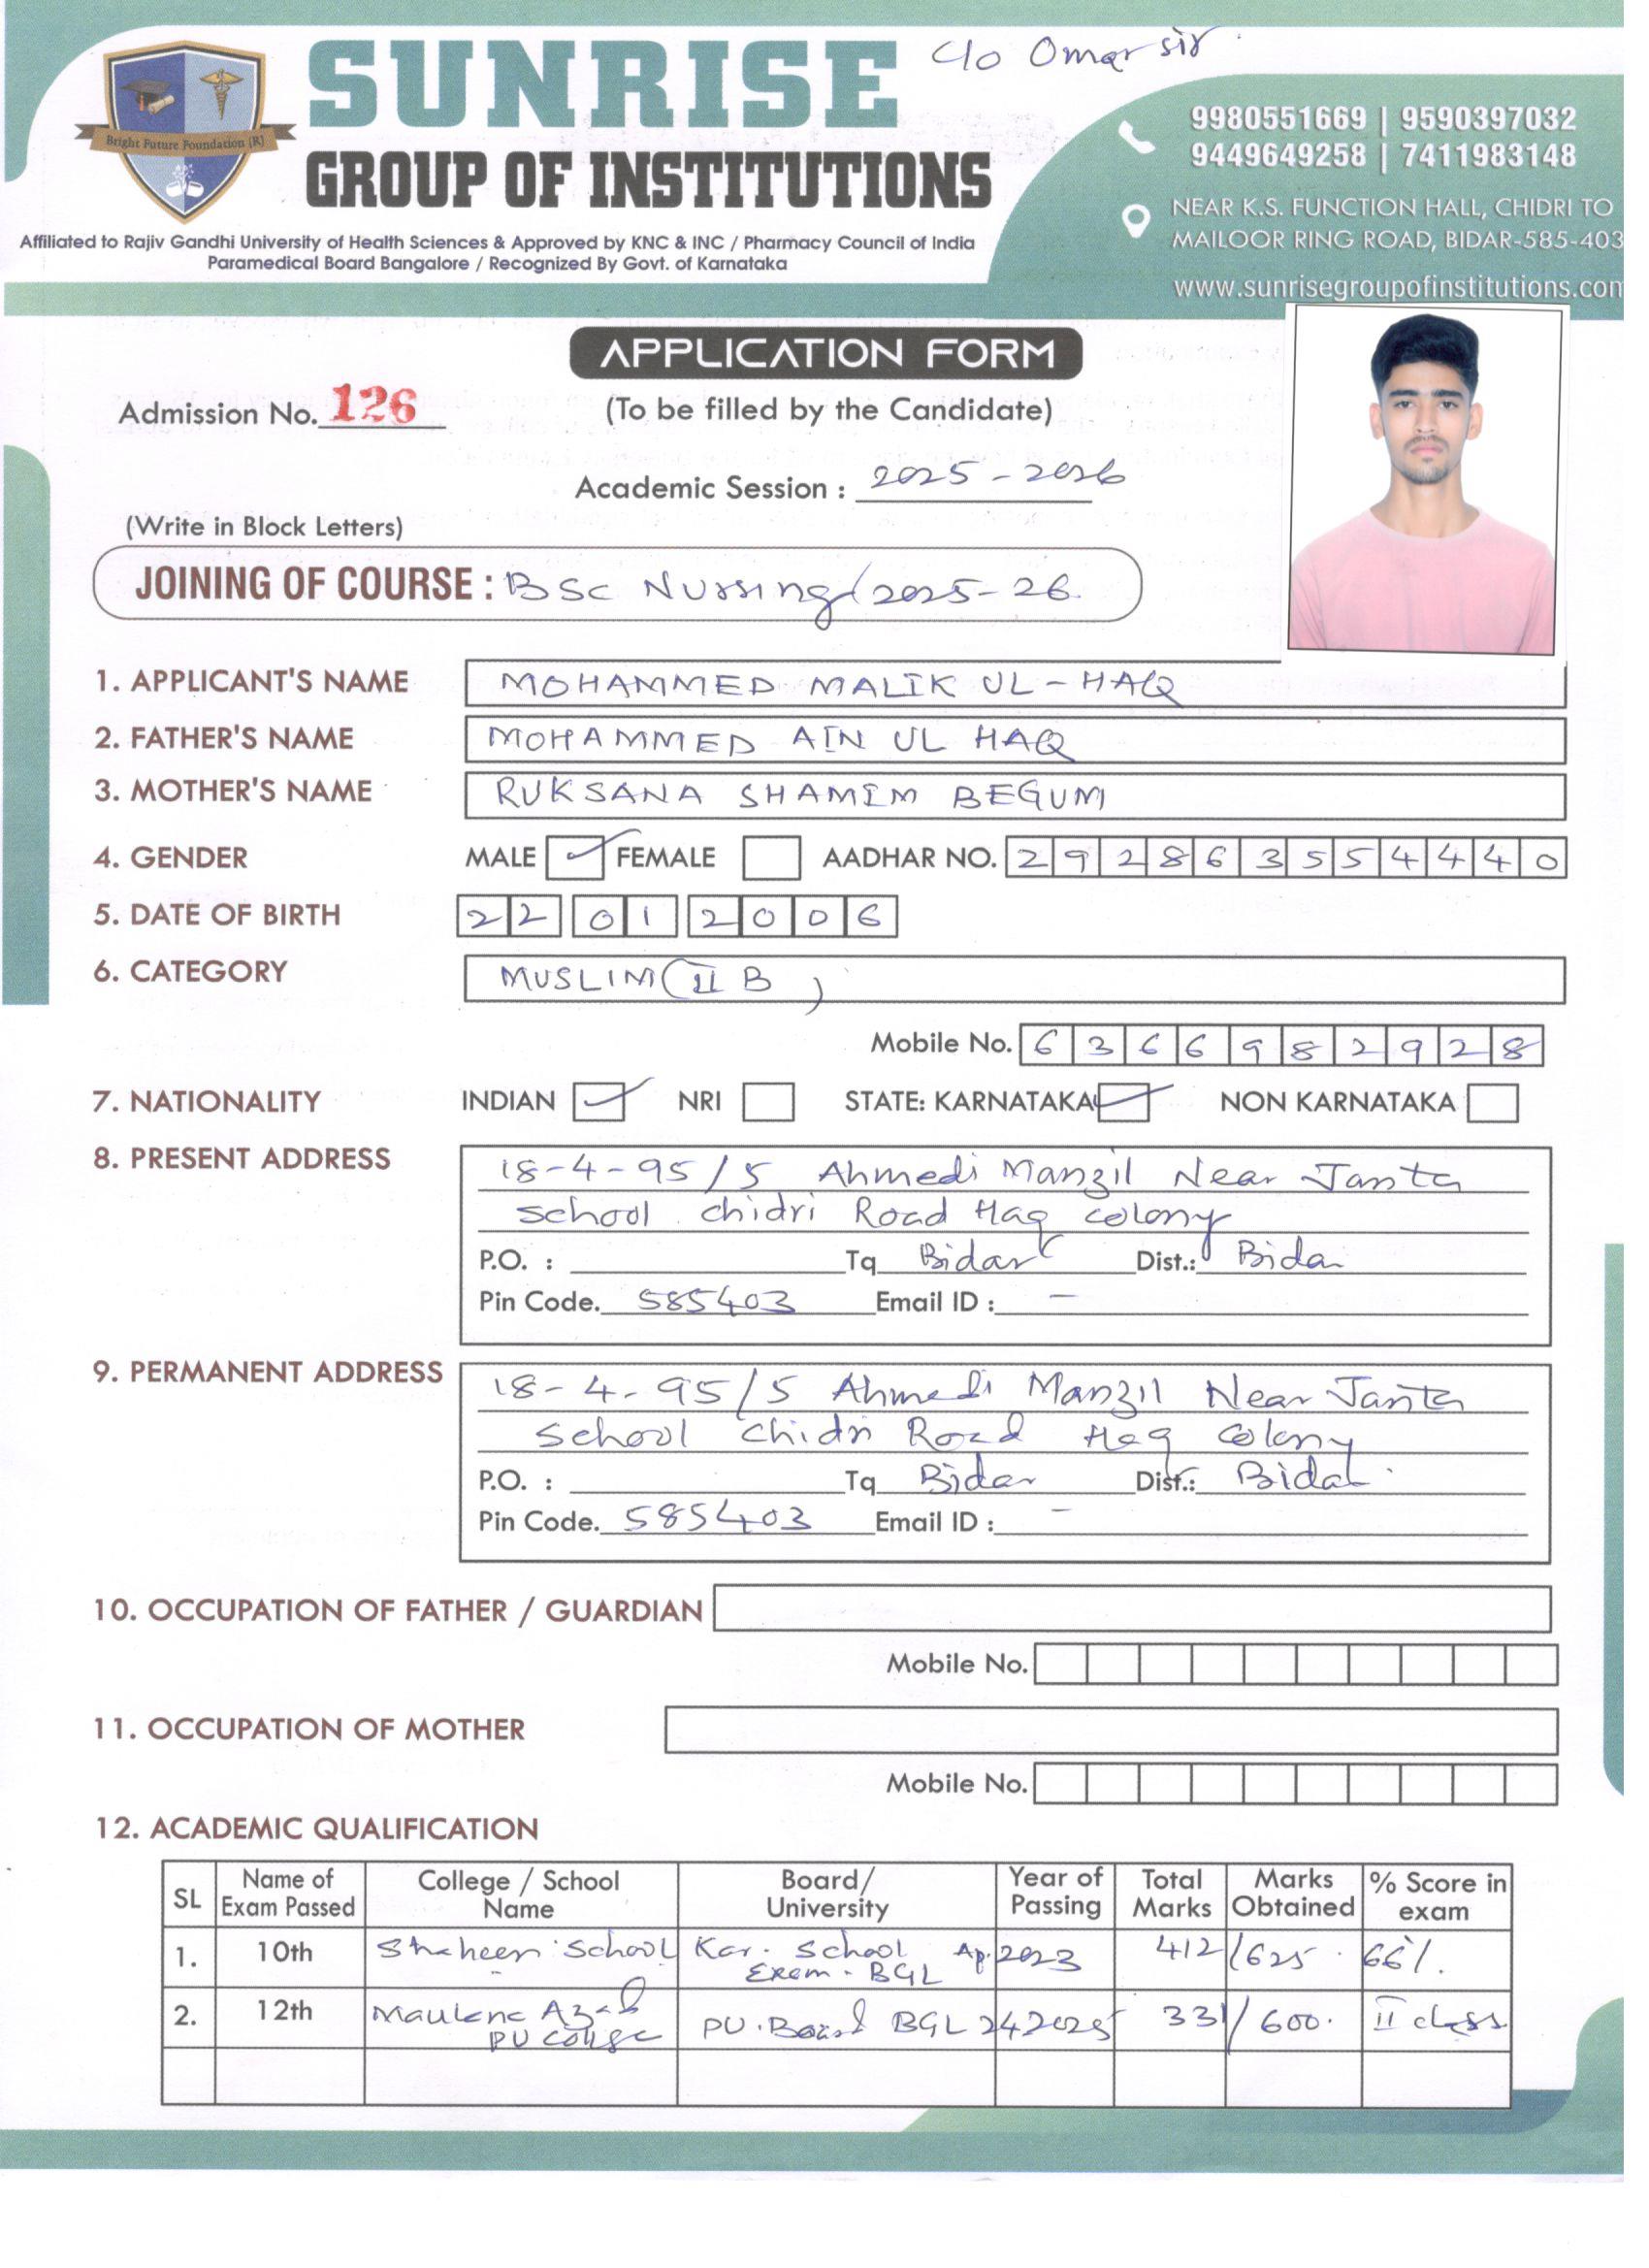 SUNRISE
GROUP OF INSTITUTIONS
C/o Omar sir.
Bright Future Foundation (R)
Affiliated to Rajiv Gandhi University of Health Sciences & Approved by KNC & INC / Pharmacy Council of India
Paramedical Board Bangalore / Recognized By Govt. of Karnataka
9980551669 | 9590397032
9449649258 | 7411983148
NEAR K.S. FUNCTION HALL, CHIDRI TO
MAILOOR RING ROAD, BIDAR-585-403
www.sunrisegroupofinstitutions.com
APPLICATION FORM
Admission No. 126 (To be filled by the Candidate)
Academic Session : 2025 - 2026
(Write in Block Letters)
JOINING OF COURSE : BSc Nursing/2025-26.
1. APPLICANT'S NAME MOHAMMED MALIK UL-HAQ
2. FATHER'S NAME MOHAMMED AIN UL HAQ
3. MOTHER'S NAME RUKSANA SHAMIM BEGUM
4. GENDER MALE ✓ FEMALE AADHAR NO. 292863554440
5. DATE OF BIRTH 22 01 2006
6. CATEGORY MUSLIM (II B)
Mobile No. 6366982928
7. NATIONALITY INDIAN ✓ NRI STATE: KARNATAKA ✓ NON KARNATAKA
8. PRESENT ADDRESS 18-4-95/5 Ahmedi Manzil Near Janta
school chidri Road Haq colony
P.O. : Tq Bidar Dist.: Bidar
Pin Code. 585403 Email ID : —
9. PERMANENT ADDRESS 18-4-95/5 Ahmedi Manzil Near Janta
School Chidri Road Haq Colony
P.O. : Tq Bidar Dist.: Bidar.
Pin Code. 585403 Email ID : —
10. OCCUPATION OF FATHER / GUARDIAN
Mobile No.
11. OCCUPATION OF MOTHER
Mobile No.
12. ACADEMIC QUALIFICATION
SL Name of Exam Passed College / School Name Board/ University Year of Passing Total Marks Marks Obtained % Score in exam
1. 10th Shaheen School Kar. School Exam. BGL Ap. 2023 412/625. 66%.
2. 12th Maulana Azad PU College PU. Board BGL 2025 331/600. II class